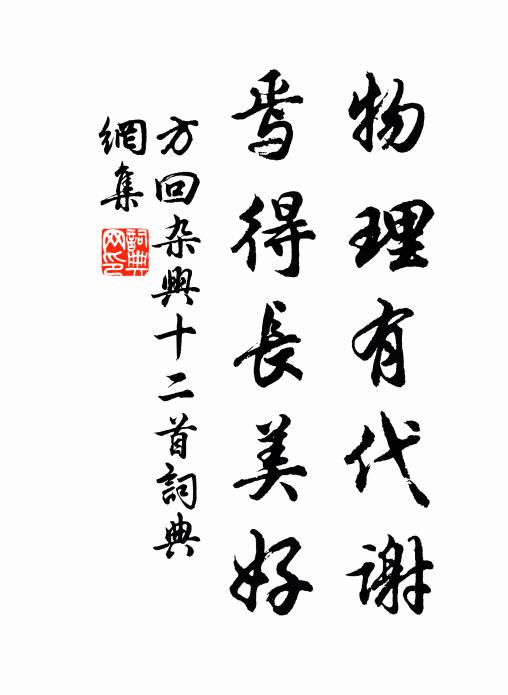 物理有代谢
焉得長美好
方回杂興十二首詞典
網集
詞典
网印